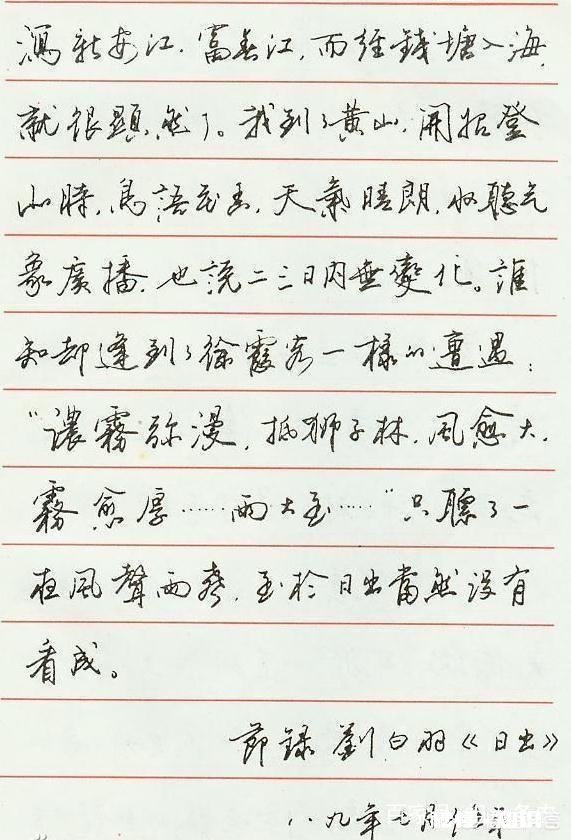 瀉新安江，富春江，而經錢塘入海，
就很顯然了。我到了黃山，開始登
山時，鳥語花香，天氣晴朗，收聽气
象廣播，也説二三日內無變化。誰
知却逢到了徐霞客一樣的遭遇：
“濃霧弥漫，抵狮子林，風愈大，
霧愈厚……雨大至……”只聽了一
夜風聲雨聲，至於日出當然没有
看成。
節錄劉白羽《日出》
八九年七月